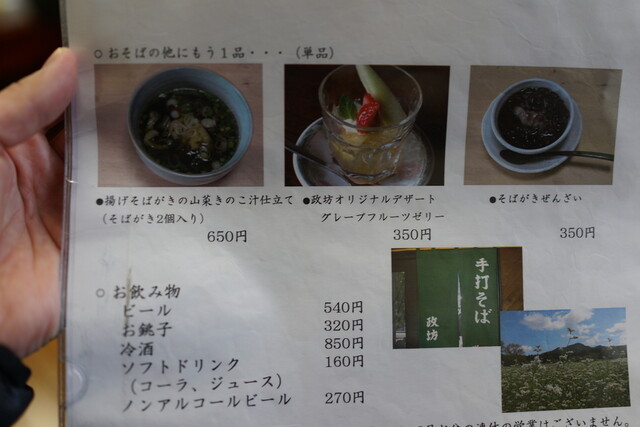 ○ おそばの他にもう1品・・・(単品)
●揚げそばがきの山菜きのこ汁仕立て
(そばがき2個入り)
650円
●政坊オリジナルデザート
グレープフルーツゼリー
350円
●そばがきぜんざい
350円
○ お飲み物
ビール 540円
お銚子 320円
冷酒 850円
ソフトドリンク 160円
(コーラ、ジュース)
ノンアルコールビール 270円
手打そば
政坊
の連休の営業はございません。